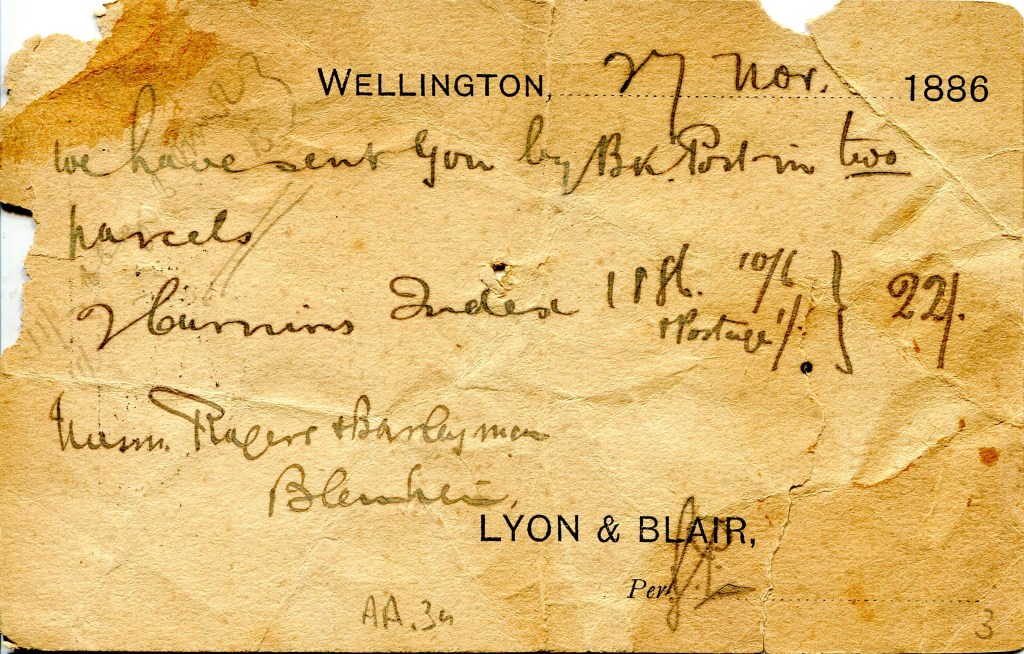 WELLINGTON, 27 Nov. 1886
we have sent you by Bk. Post in two
parcels
Index 1886. 10/6 } 22/.
& Postage 1/.
Messrs. Rogers &
Blenheim.
LYON & BLAIR,
Per
AA.3a
3